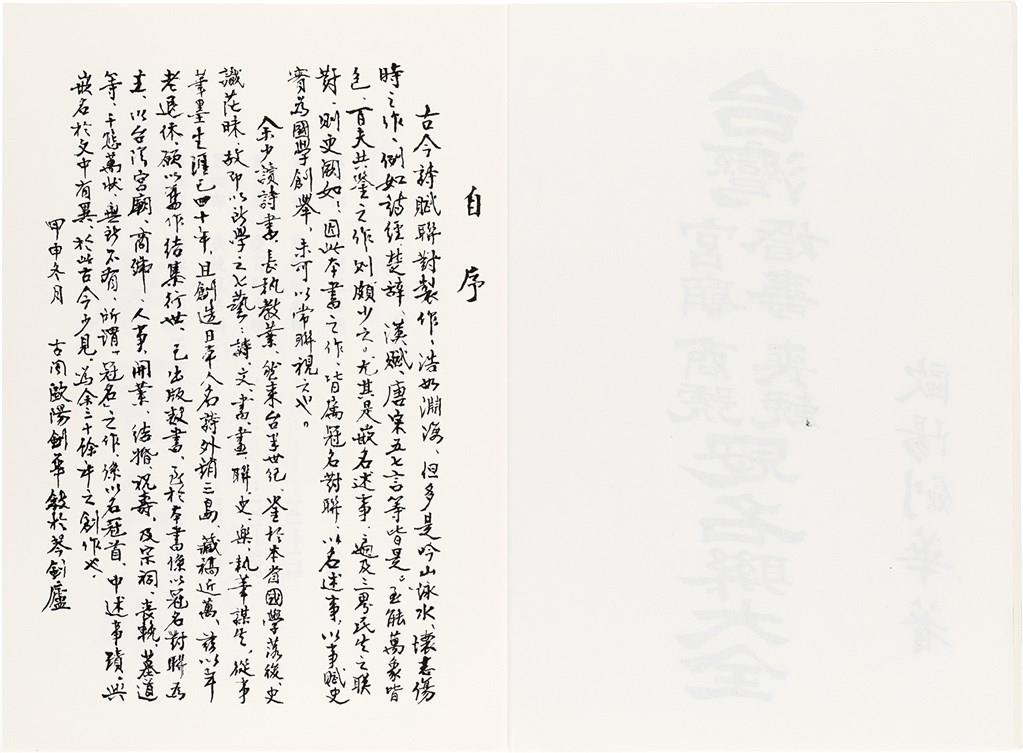 歐陽劍華著
台灣
婚壽喪輓
宮廟商號
冠名聯大全
自序
古今詩賦聯對製作、浩如淵海、但多是吟山詠水、懷志傷
時之作、例如詩經、楚辭、漢賦、唐宋五七言等皆是。至能萬象皆
包、百夫共鑒之作則頗少之。尤其是嵌名述事、遍及三界民生之聯
對、則更闕如；因此本書之作、皆屬冠名對聯、以名述事、以事賦史
實為國學創舉、未可以常聯視之也。
余少讀詩書、長執教業、然來台半世紀、鑒於本省國學落後、史
識茫昧、故即以所學之七藝：詩、文、書、畫、聯、史、樂、執筆謀生、從事
筆墨生涯已四十年、且創造日本人名詩外銷三島、藏稿近萬、茲以年
老退休、願以舊作結集行世、已出版數書、至於本書係以冠名對聯為
主、以台灣宮廟、商號、人事、開業、結婚、祝壽、及宗祠、喪輓、墓道
等、千態萬狀、無所不有、所謂冠名之作、係以名冠首、中述事蹟、與
嵌名於文中有異、於此古今少見、為余三十餘年之創作也、
甲申冬月　古閩歐陽劍華敘於琴劍廬